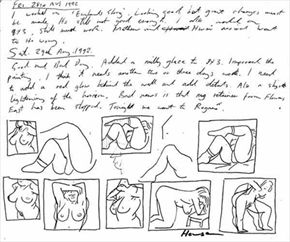 FRI 28th AUG 1992
I worked on "Enfants Story". Looking good but some changes must
be made. It's still not good enough. I also worked on
P43. Still needs work. Matthew and Marian around. went
to the swing.
Sat. 29th Aug 1992.
Good and Bad Day. Added a milky glaze to P43. Improved the
painting. I think it needs another two or three days work. I need
to add a red glow behind the wall and add details. Also a short
lightening of the horizon. Bad news is that my retainer from Flowers
East has been stopped. Tonight we went to
Howson